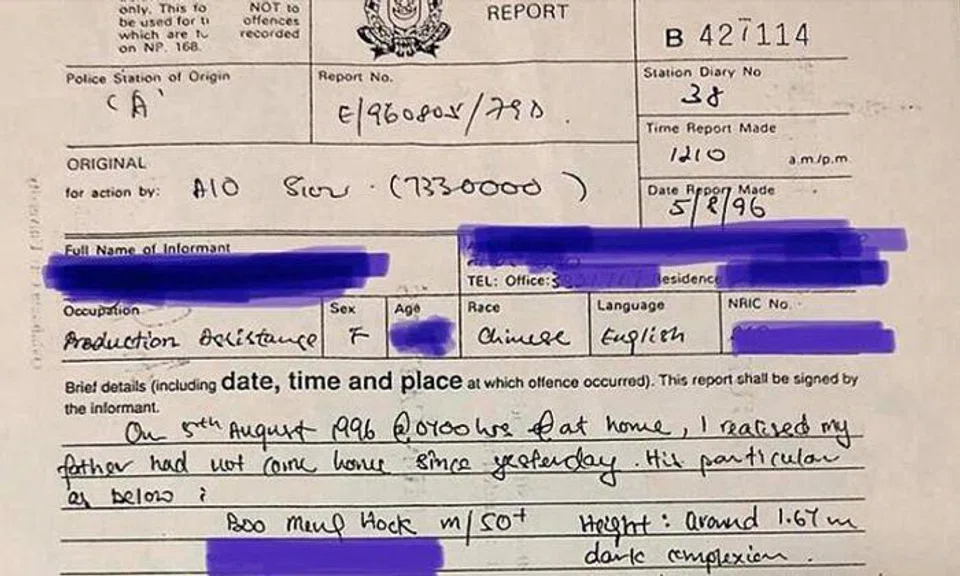 only. This fo NOT to
be used for t offences
which are t recorded
on NP. 168.
REPORT
B 427114
Police Station of Origin
'A'
Report No.
E/960805/790
Station Diary No
38
Time Report Made
1210 a.m./p.m.
ORIGINAL
for action by: AIO (7330000)
Date Report Made
5/8/96
Full Name of Informant
TEL: Office: Residence
Occupation
Production Assistance
Sex
F
Age
Race
Chinese
Language
English
NRIC No.
Brief details (including date, time and place at which offence occurred). This report shall be signed by
the informant.
On 5th August 1996 @ 0700 hrs at home, I realised my
father had not come home since yesterday. His particular
as below :
Boo Meng Hock m/50+ Height : around 1.67 m
dark complexion.